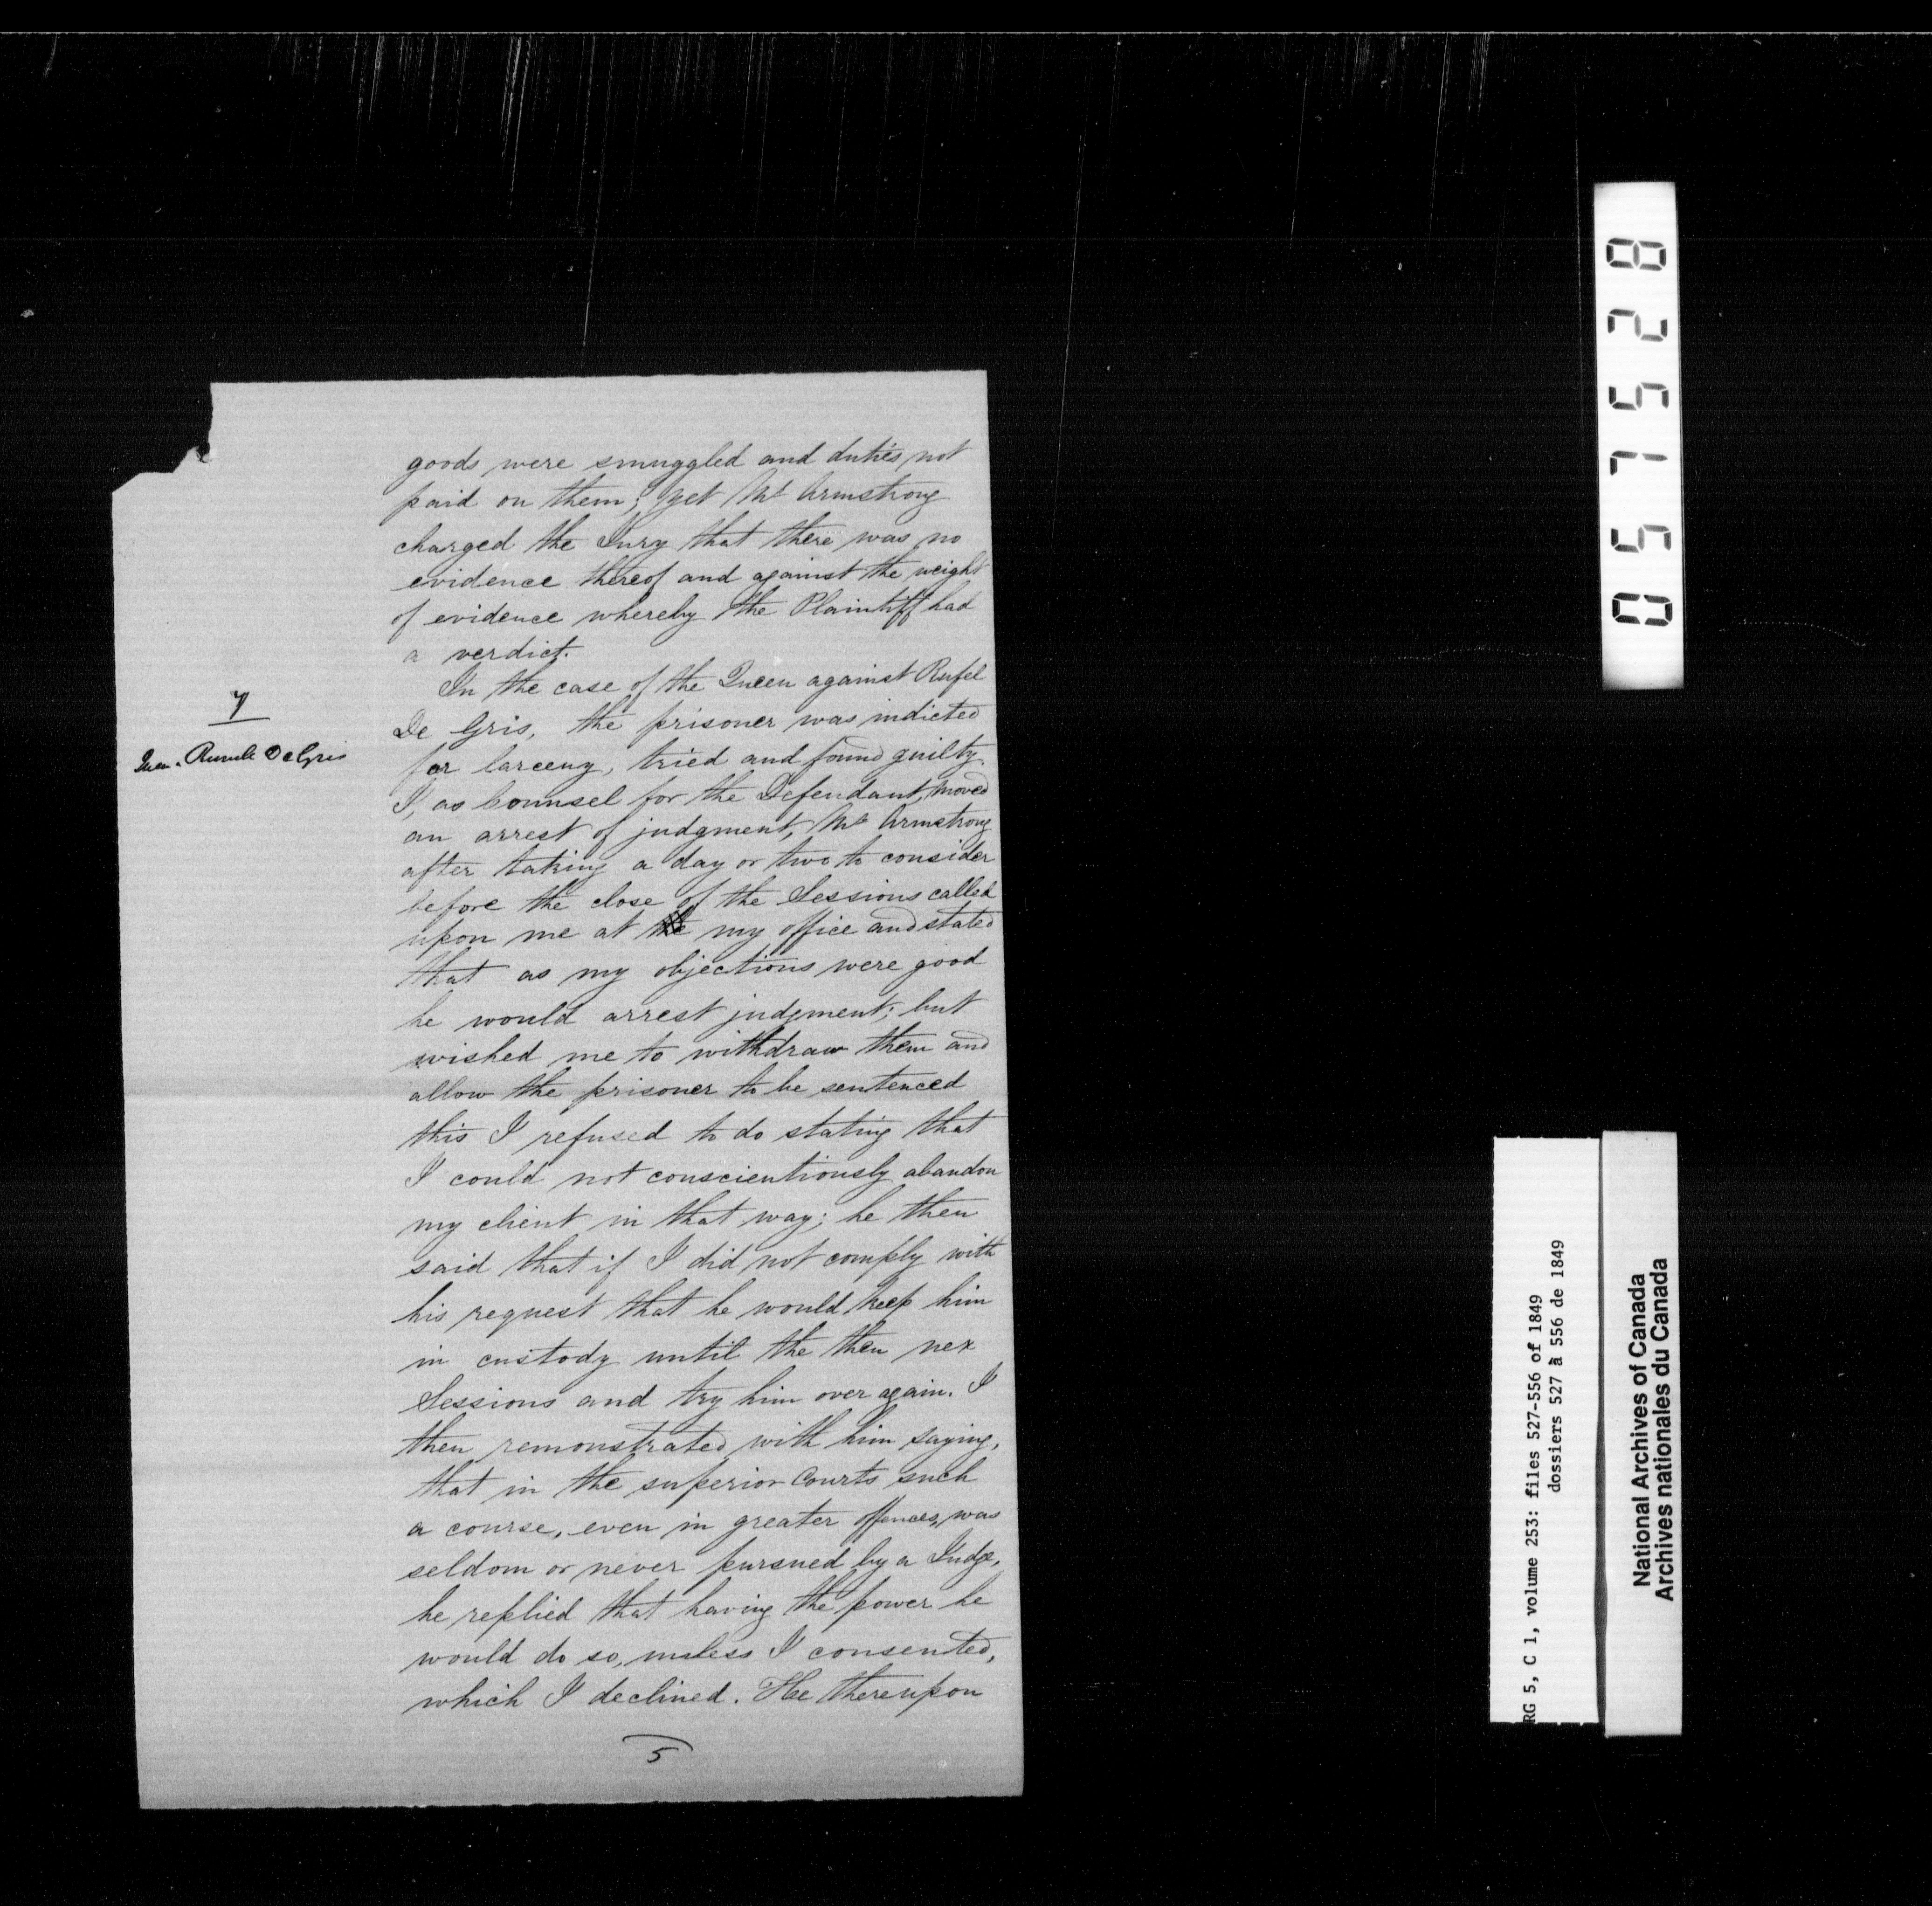 goods were smuggled and duties not
paid on them; yet Mr Armstrong
charged the Jury that there was no
evidence thereof and against the weight
of evidence whereby the Plaintiff had
a verdict.
7
Queen. De Gris
In the case of the Queen against Rufel
De Gris, the prisoner was indicted
for larceny, tried and found guilty.
I, as Counsel for the Defendant, moved
an arrest of judgment, Mr Armstrong
after taking a day or two to consider
before the close of the Sessions called
upon me at my office and stated
that as my objections were good
he would arrest judgment; but
wished me to withdraw them and
allow the prisoner to be sentenced
this I refused to do stating that
I could not conscientiously abandon
my client in that way; he then
said that if I did not comply with
his request that he would keep him
in custody until the then nex
Sessions and try him over again. I
then remonstrated with him saying,
that in the superior Courts such
a course, even in greater offences, was
seldom or never pursued by a Judge,
he replied that having the power he
would do so, unless I consented,
which I declined. He thereupon
5
057528
RG 5, C 1, volume 253: files 527-556 of 1849
dossiers 527 à 556 de 1849
National Archives of Canada
Archives nationales du Canada